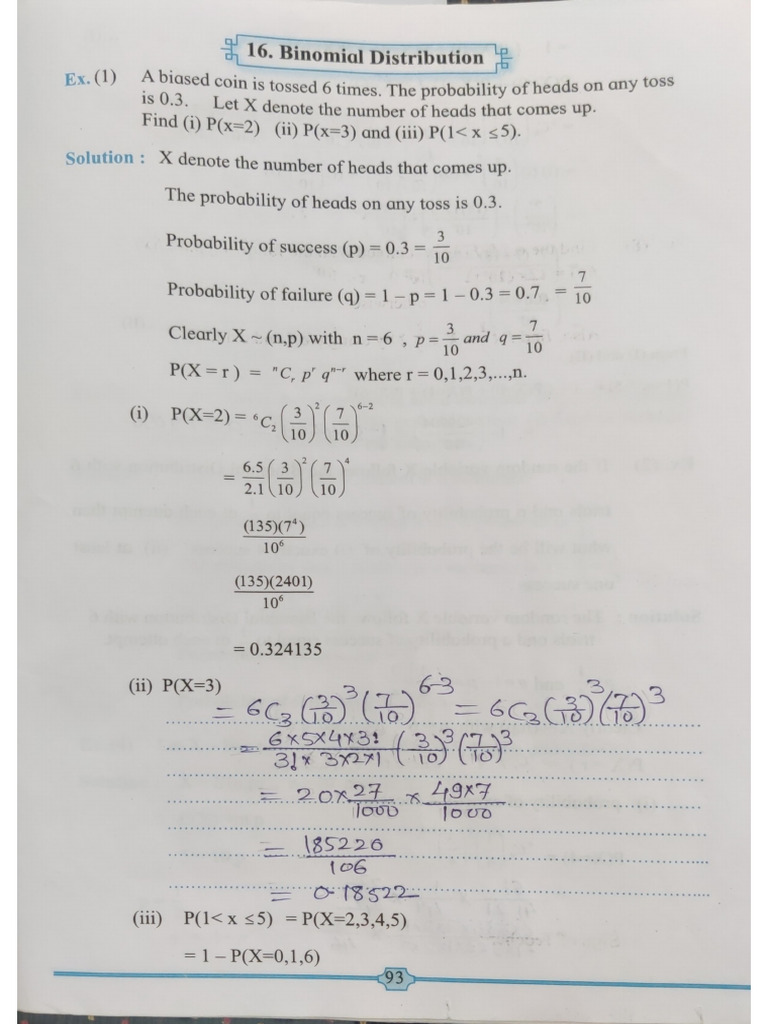 16. Binomial Distribution
Ex. (1) A biased coin is tossed 6 times. The probability of heads on any toss
is 0.3. Let X denote the number of heads that comes up.
Find (i) P(x=2) (ii) P(x=3) and (iii) P(1< x ≤5).
Solution : X denote the number of heads that comes up.
The probability of heads on any toss is 0.3.
Probability of success (p) = 0.3 = 3/10
Probability of failure (q) = 1 – p = 1 – 0.3 = 0.7 = 7/10
Clearly X ~ (n,p) with n = 6 , p = 3/10 and q = 7/10
P(X = r ) = ⁿCᵣ pʳ qⁿ⁻ʳ where r = 0,1,2,3,...,n.
(i) P(X=2) = ⁶C₂ (3/10)² (7/10)⁶⁻²
= 6.5/2.1 (3/10)² (7/10)⁴
(135)(7⁴)/10⁶
(135)(2401)/10⁶
= 0.324135
(ii) P(X=3)
= 6C₃ (3/10)³ (7/10)⁶⁻³ = 6C₃ (3/10)³ (7/10)³
= 6×5×4×3!/3!×3×2×1 (3/10)³ (7/10)³
= 20 × 27/1000 × 49×7/1000
= 185220/106
= 0.18522
(iii) P(1< x ≤5) = P(X=2,3,4,5)
= 1 – P(X=0,1,6)
93